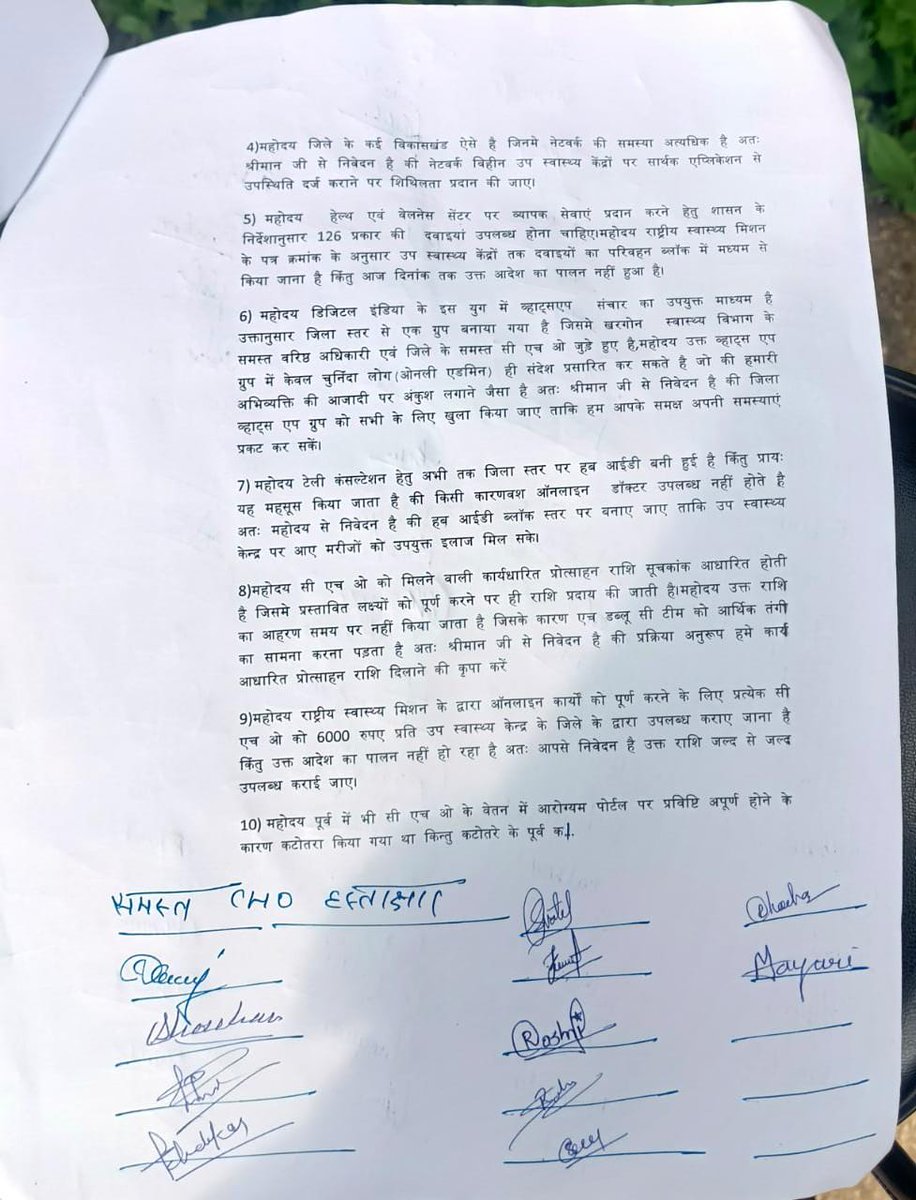 4)महोदय जिले के कई विकासखंड ऐसे है जिनमे नेटवर्क की समस्या अत्यधिक है अतः
श्रीमान जी से निवेदन है की नेटवर्क विहीन उप स्वास्थ्य केंद्रों पर सार्थक एप्लिकेशन से
उपस्थिति दर्ज कराने पर शिथिलता प्रदान की जाए।
5) महोदय हेल्थ एवं वेलनेस सेंटर पर व्यापक सेवाएं प्रदान करने हेतु शासन के
निर्देशानुसार 126 प्रकार की दवाइयां उपलब्ध होना चाहिए।महोदय राष्ट्रीय स्वास्थ्य मिशन
के पत्र क्रमांक के अनुसार उप स्वास्थ्य केंद्रों तक दवाइयों का परिवहन ब्लॉक में मध्यम से
किया जाना है किंतु आज दिनांक तक उक्त आदेश का पालन नहीं हुआ है।
6) महोदय डिजिटल इंडिया के इस युग में व्हाट्सएप संचार का उपयुक्त माध्यम है
उक्तानुसार जिला स्तर से एक ग्रुप बनाया गया है जिसमे खरगोन स्वास्थ्य विभाग के
समस्त वरिष्ठ अधिकारी एवं जिले के समस्त सी एच ओ जुड़े हुए है,महोदय उक्त व्हाट्स एप
ग्रुप में केवल चुनिंदा लोग(ओनली एडमिन) ही संदेश प्रसारित कर सकते है जो की हमारी
अभिव्यक्ति की आजादी पर अंकुश लगाने जैसा है अतः श्रीमान जी से निवेदन है की जिला
व्हाट्स एप ग्रुप को सभी के लिए खुला किया जाए ताकि हम आपके समक्ष अपनी समस्याएं
प्रकट कर सकें।
7) महोदय टेली कंसल्टेशन हेतु अभी तक जिला स्तर पर हब आईडी बनी हुई है किंतु प्रायः
यह महसूस किया जाता है की किसी कारणवश ऑनलाइन डॉक्टर उपलब्ध नहीं होते है
अतः महोदय से निवेदन है की हब आईडी ब्लॉक स्तर पर बनाए जाए ताकि उप स्वास्थ्य
केन्द्र पर आए मरीजों को उपयुक्त इलाज मिल सके।
8)महोदय सी एच ओ को मिलने वाली कार्यधारित प्रोत्साहन राशि सूचकांक आधारित होती
है जिसमे प्रस्तावित लक्ष्यों को पूर्ण करने पर ही राशि प्रदाय की जाती है।महोदय उक्त राशि
का आहरण समय पर नहीं किया जाता है जिसके कारण एच डब्लू सी टीम को आर्थिक तंगी
का सामना करना पड़ता है अतः श्रीमान जी से निवेदन है की प्रक्रिया अनुरूप हमे कार्य
आधारित प्रोत्साहन राशि दिलाने की कृपा करें
9)महोदय राष्ट्रीय स्वास्थ्य मिशन के द्वारा ऑनलाइन कार्यों को पूर्ण करने के लिए प्रत्येक सी
एच ओ को 6000 रुपए प्रति उप स्वास्थ्य केन्द्र के जिले के द्वारा उपलब्ध कराए जाना है
किंतु उक्त आदेश का पालन नहीं हो रहा है अतः आपसे निवेदन है उक्त राशि जल्द से जल्द
उपलब्ध कराई जाए।
10) महोदय पूर्व में भी सी एच ओ के वेतन में आरोग्यम पोर्टल पर प्रविष्टि अपूर्ण होने के
कारण कटोतरा किया गया था किन्तु कटोतरे के पूर्व क
समस्त CHO हस्ताक्षर
Mayuri
Rashmi